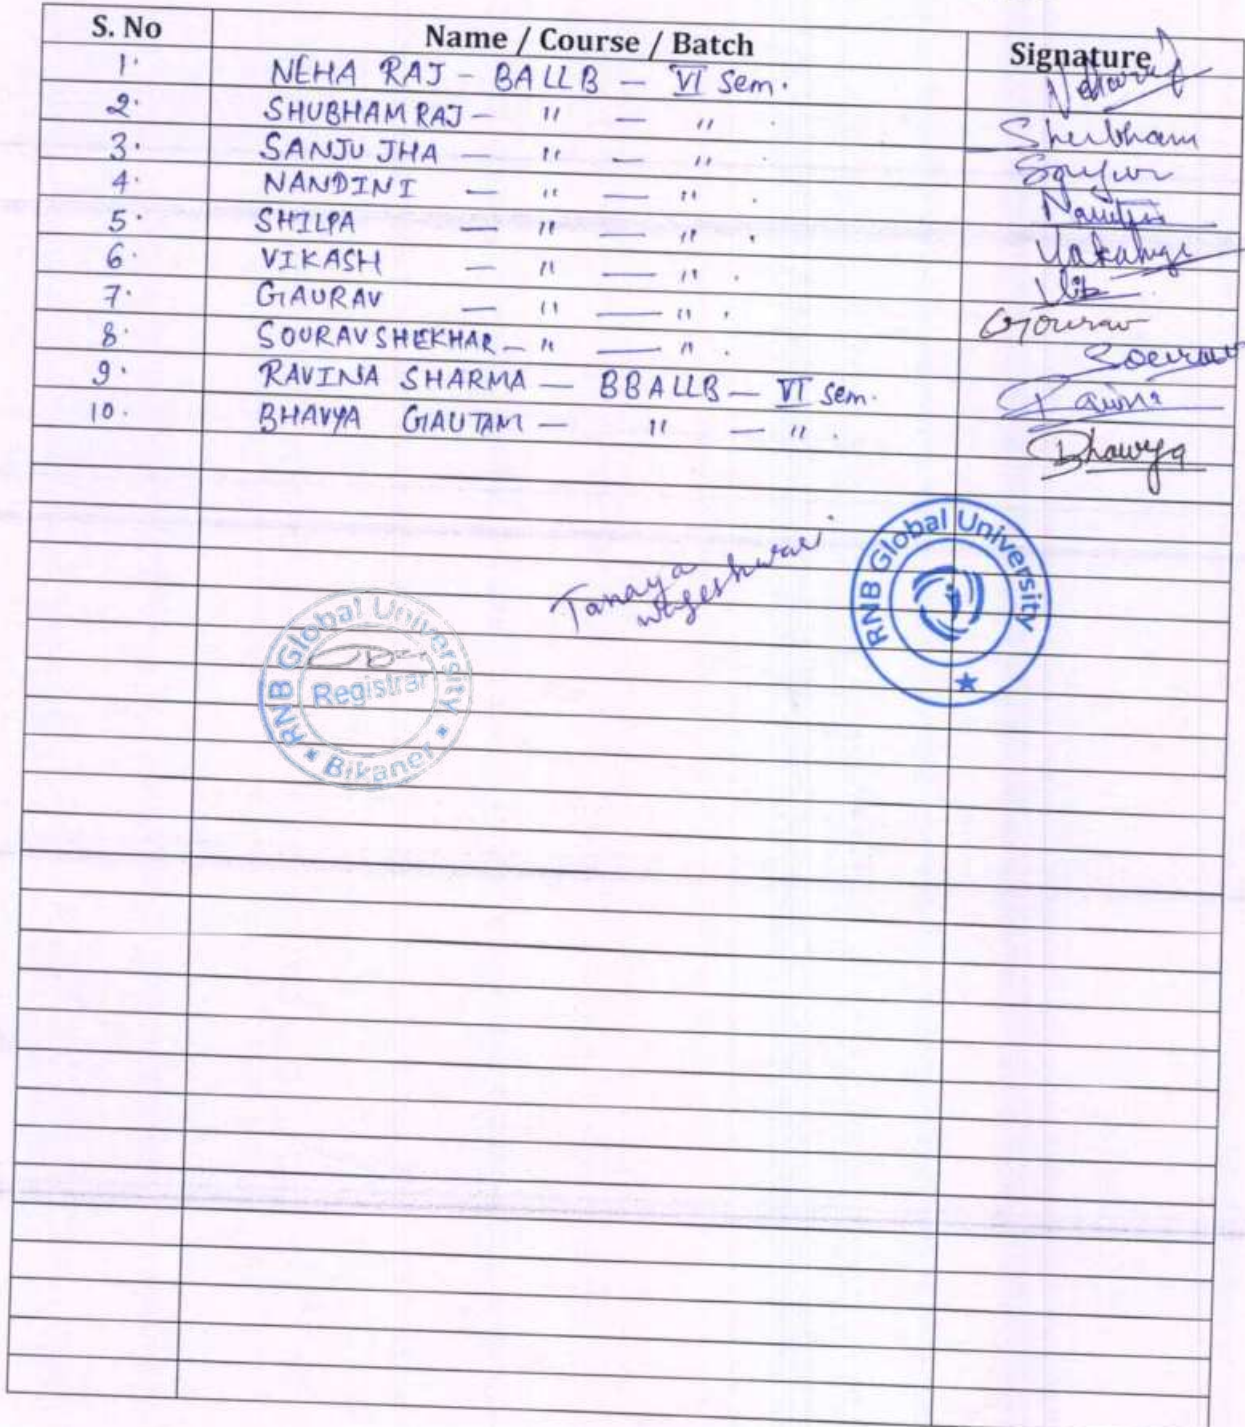 S. No Name / Course / Batch Signature
1. NEHA RAJ - BALLB - VI Sem. Neharaj
2. SHUBHAM RAJ - " - " . Shubham
3. SANJU JHA - " - " .
4. NANDINI - " - " . Nandini
5. SHILPA - " - " .
6. VIKASH - " - " .
7. GAURAV - " - " . Gourav
8. SOURAV SHEKHAR - " - " . Sourav
9. RAVINA SHARMA - BBALLB - VI Sem. Ravina
10. BHAVYA GAUTAM - " - " . Bhawya
Tanaya
RNB Global University
RNB Global University
Registrar
* Bikaner *